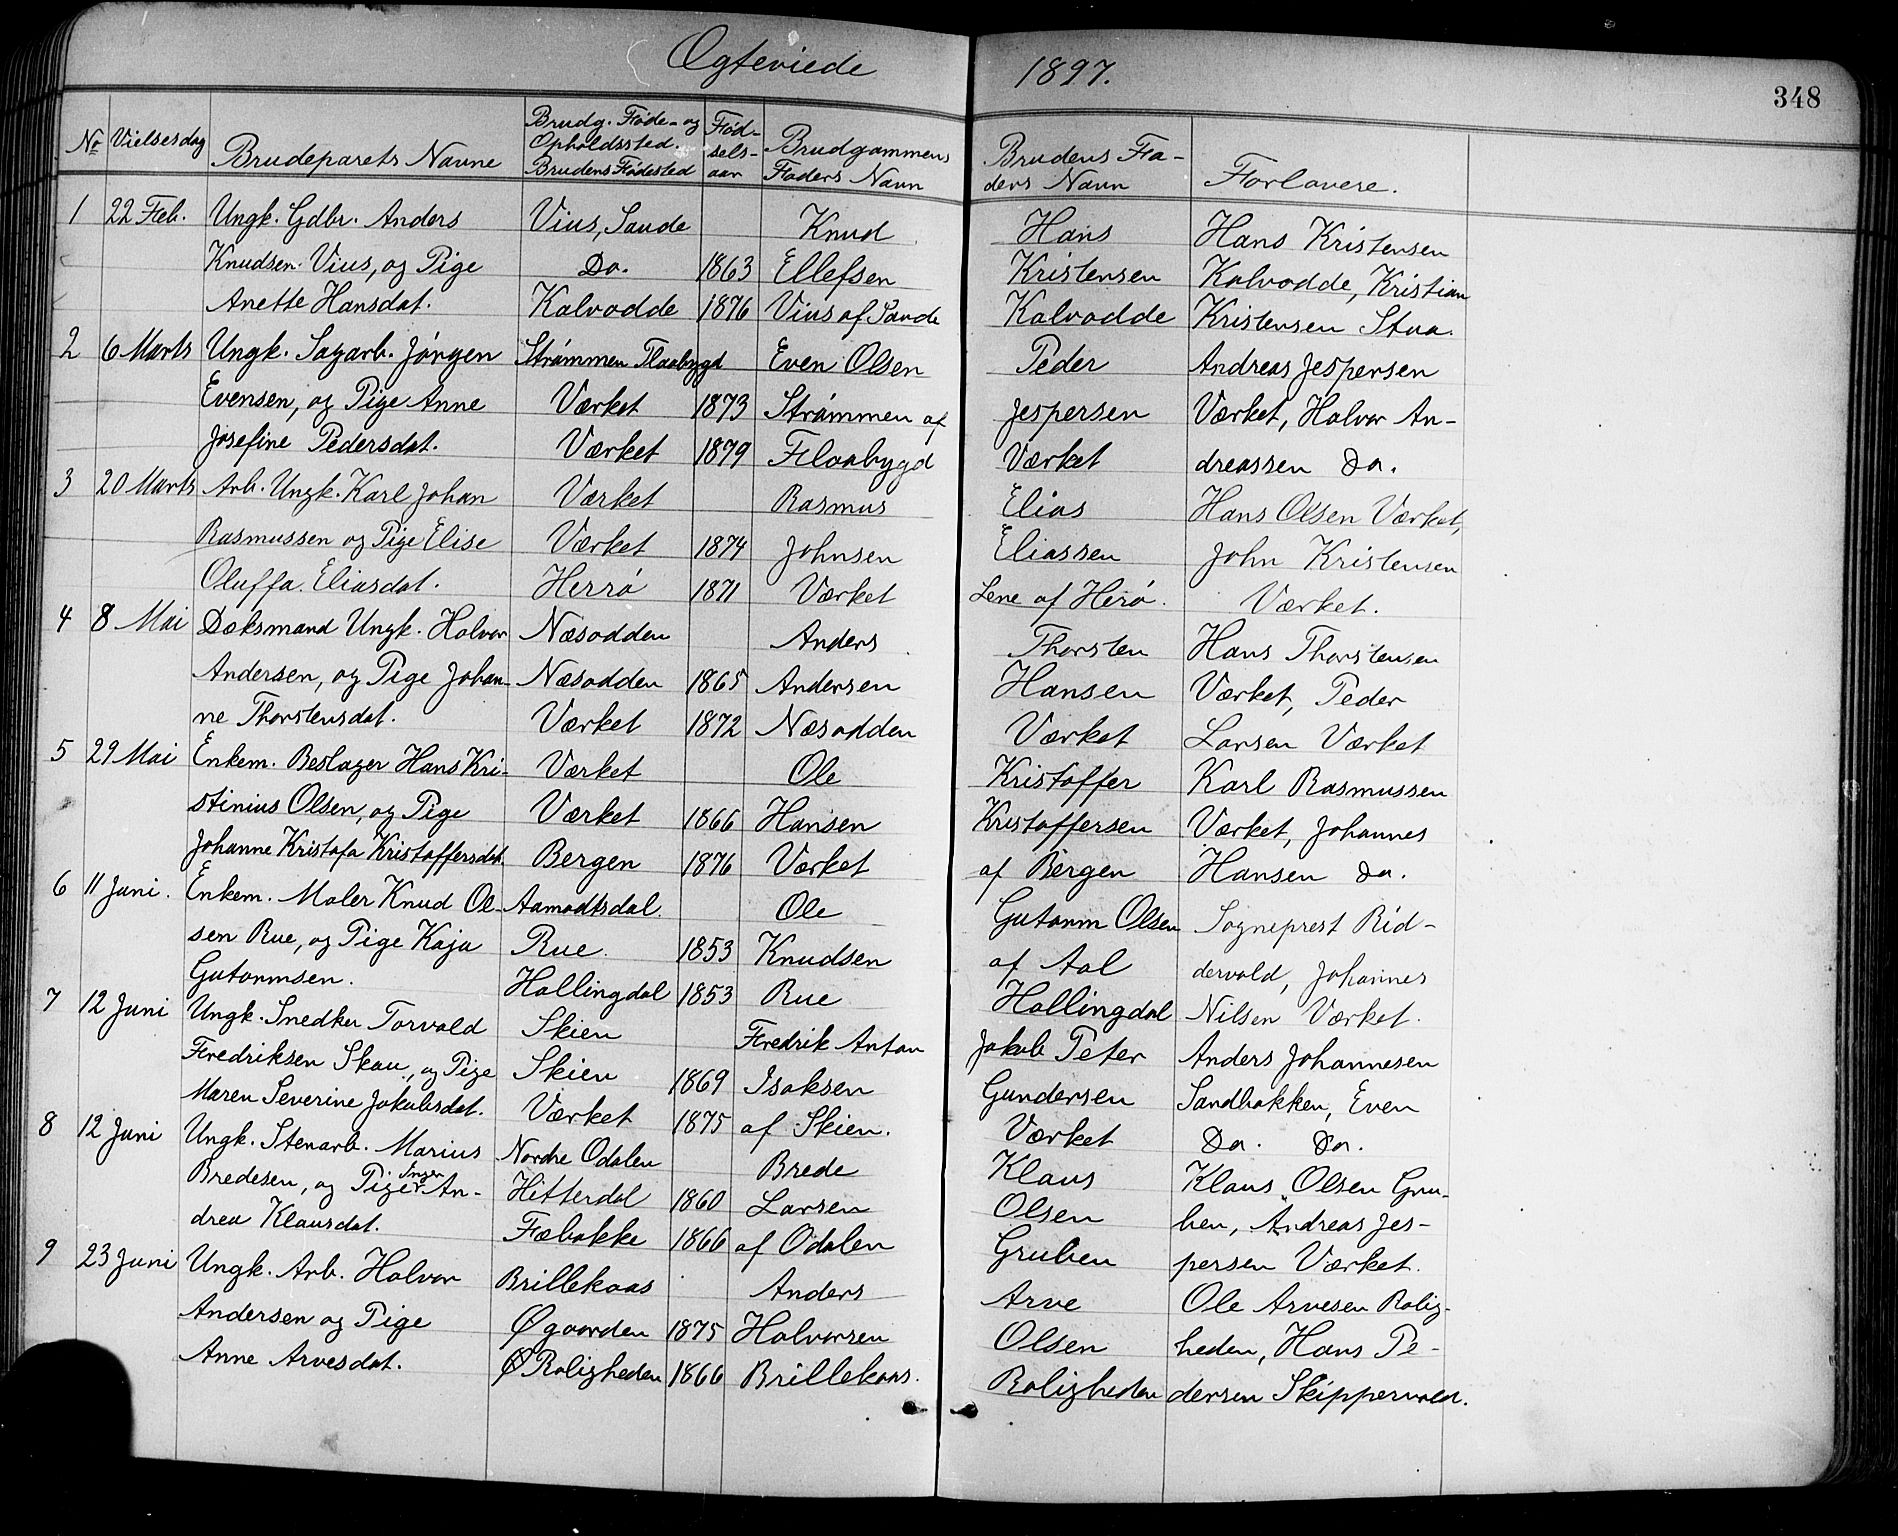 Ægteviede 1897.
348
No Vielsesdag Brudeparets Navne Brudg. Føde- og Opholdssted. Brudens Fødested Fød-sels-aar Brudgommens Faders Navn Brudens Fa-ders Navn Forlovere.
1 22 Feb. Ungk. Gdbr. Anders Vius, Saude Knud Hans Hans Kristensen
Knudsen Vius, og Pige Do. 1863 Ellefsen Kristensen Kalvodde, Kristian
Anette Hansdat. Kalvodde 1876 Vius af Saude Kalvodde Kristensen Stua.
2 6 Marts Ungk. Sagarb. Jørgen Strømmen Flaabygd Even Olsen Peder Andreas Jespersen
Evensen, og Pige Anne Værket 1873 Strømmen af Jespersen Værket, Halvor An-
Josefine Pedersdat. Værket 1879 Flaabygd Værket dreassen Do.
3 20 Marts Arb. Ungk. Karl Johan Værket Rasmus Elias Hans Olsen Værket,
Rasmussen og Pige Elise Værket 1874 Johnsen Eliassen John Kristensen
Oluffa Eliasdat. Herrø 1871 Værket Lene af Herø. Værket.
4 8 Mai Doksmand Ungk. Halvor Næsodden Anders Thorsten Hans Thorstensen
Andersen, og Pige Johan- Næsodden 1865 Andersen Hansen Værket, Peder
ne Thorstensdat. Værket 1872 Næsodden Værket Larsen Værket
5 29 Mai Enkem. Beslager Hans Kri- Værket Ole Kristoffer Karl Rasmussen
stinius Olsen, og Pige Værket 1866 Hansen Kristoffersen Værket, Johannes
Johanne Kristofa Kristoffersdat. Bergen 1876 Værket af Bergen Hansen Do.
6 11 Juni. Enkem. Maler Knud Ol- Aamodtsdal. Ole Gutorm Olsen Sogneprest Rid-
sen Rue, og Pige Kaja Rue. 1853 Knudsen af Aal dervold, Johannes
Gutormsen. Hallingdal 1853 Rue Hallingdal Nilsen Værket.
7 12 Juni Ungk. Snedker Torvald Skien Fredrik Anton Jakob Peter Anders Johannesen
Fredriksen Skau, og Pige Skien 1869 Isaksen Gundersen Sandbakken, Even
Maren Severine Jakobsdat. Værket 1875 af Skien. Værket Do. Do.
8 12 Juni Ungk. Stenarb. Marius Nordre Odalen Brede Klaus Klaus Olsen Gru-
Bredesen, og Pige Inger An- Hitterdal 1860 Larsen Olsen ben, Andreas Jes-
drea Klausdat. Fæbakke 1866 af Odalen Gruben persen Værket.
9 23 Juni Ungk. Arb. Halvor Brillekaas Anders Arve Ole Arvesen Rolig-
Andersen og Pige Øgaarden 1875 Halvorsen Olsen heden, Hans Pe-
Anne Arvesdat. Ø Roligheden 1866 Brillekaas. Roligheden dersen Skippervold.